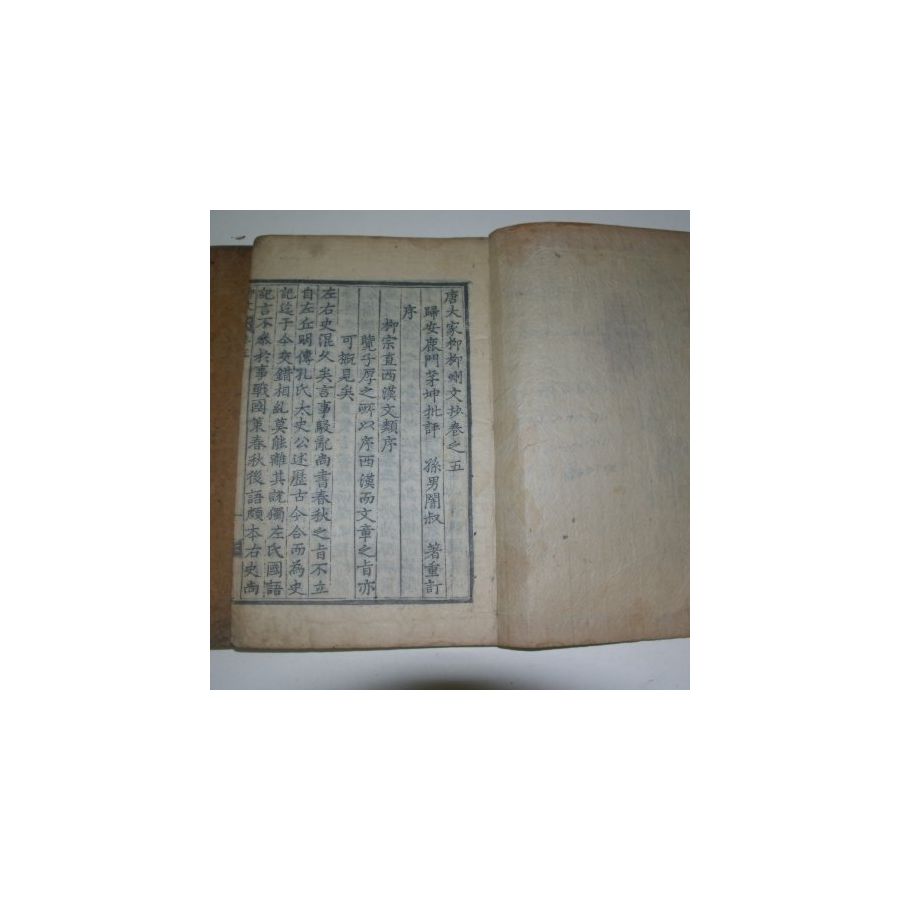 唐大家柳柳州文抄卷之五
歸安鹿門茅坤批評 孫男闇叔 著重訂
序
柳宗直西漢文類序
覽子厚之所以序西漢而文章之旨亦
可概見矣
左右史混久矣言事駁亂尚書春秋之旨不立
自左丘明傳孔氏太史公述歷古今合而為史
記迄于今交錯相乱莫能離其說獨左氏國語
記言不叅於事戰國策春秋後語頗本右史尚